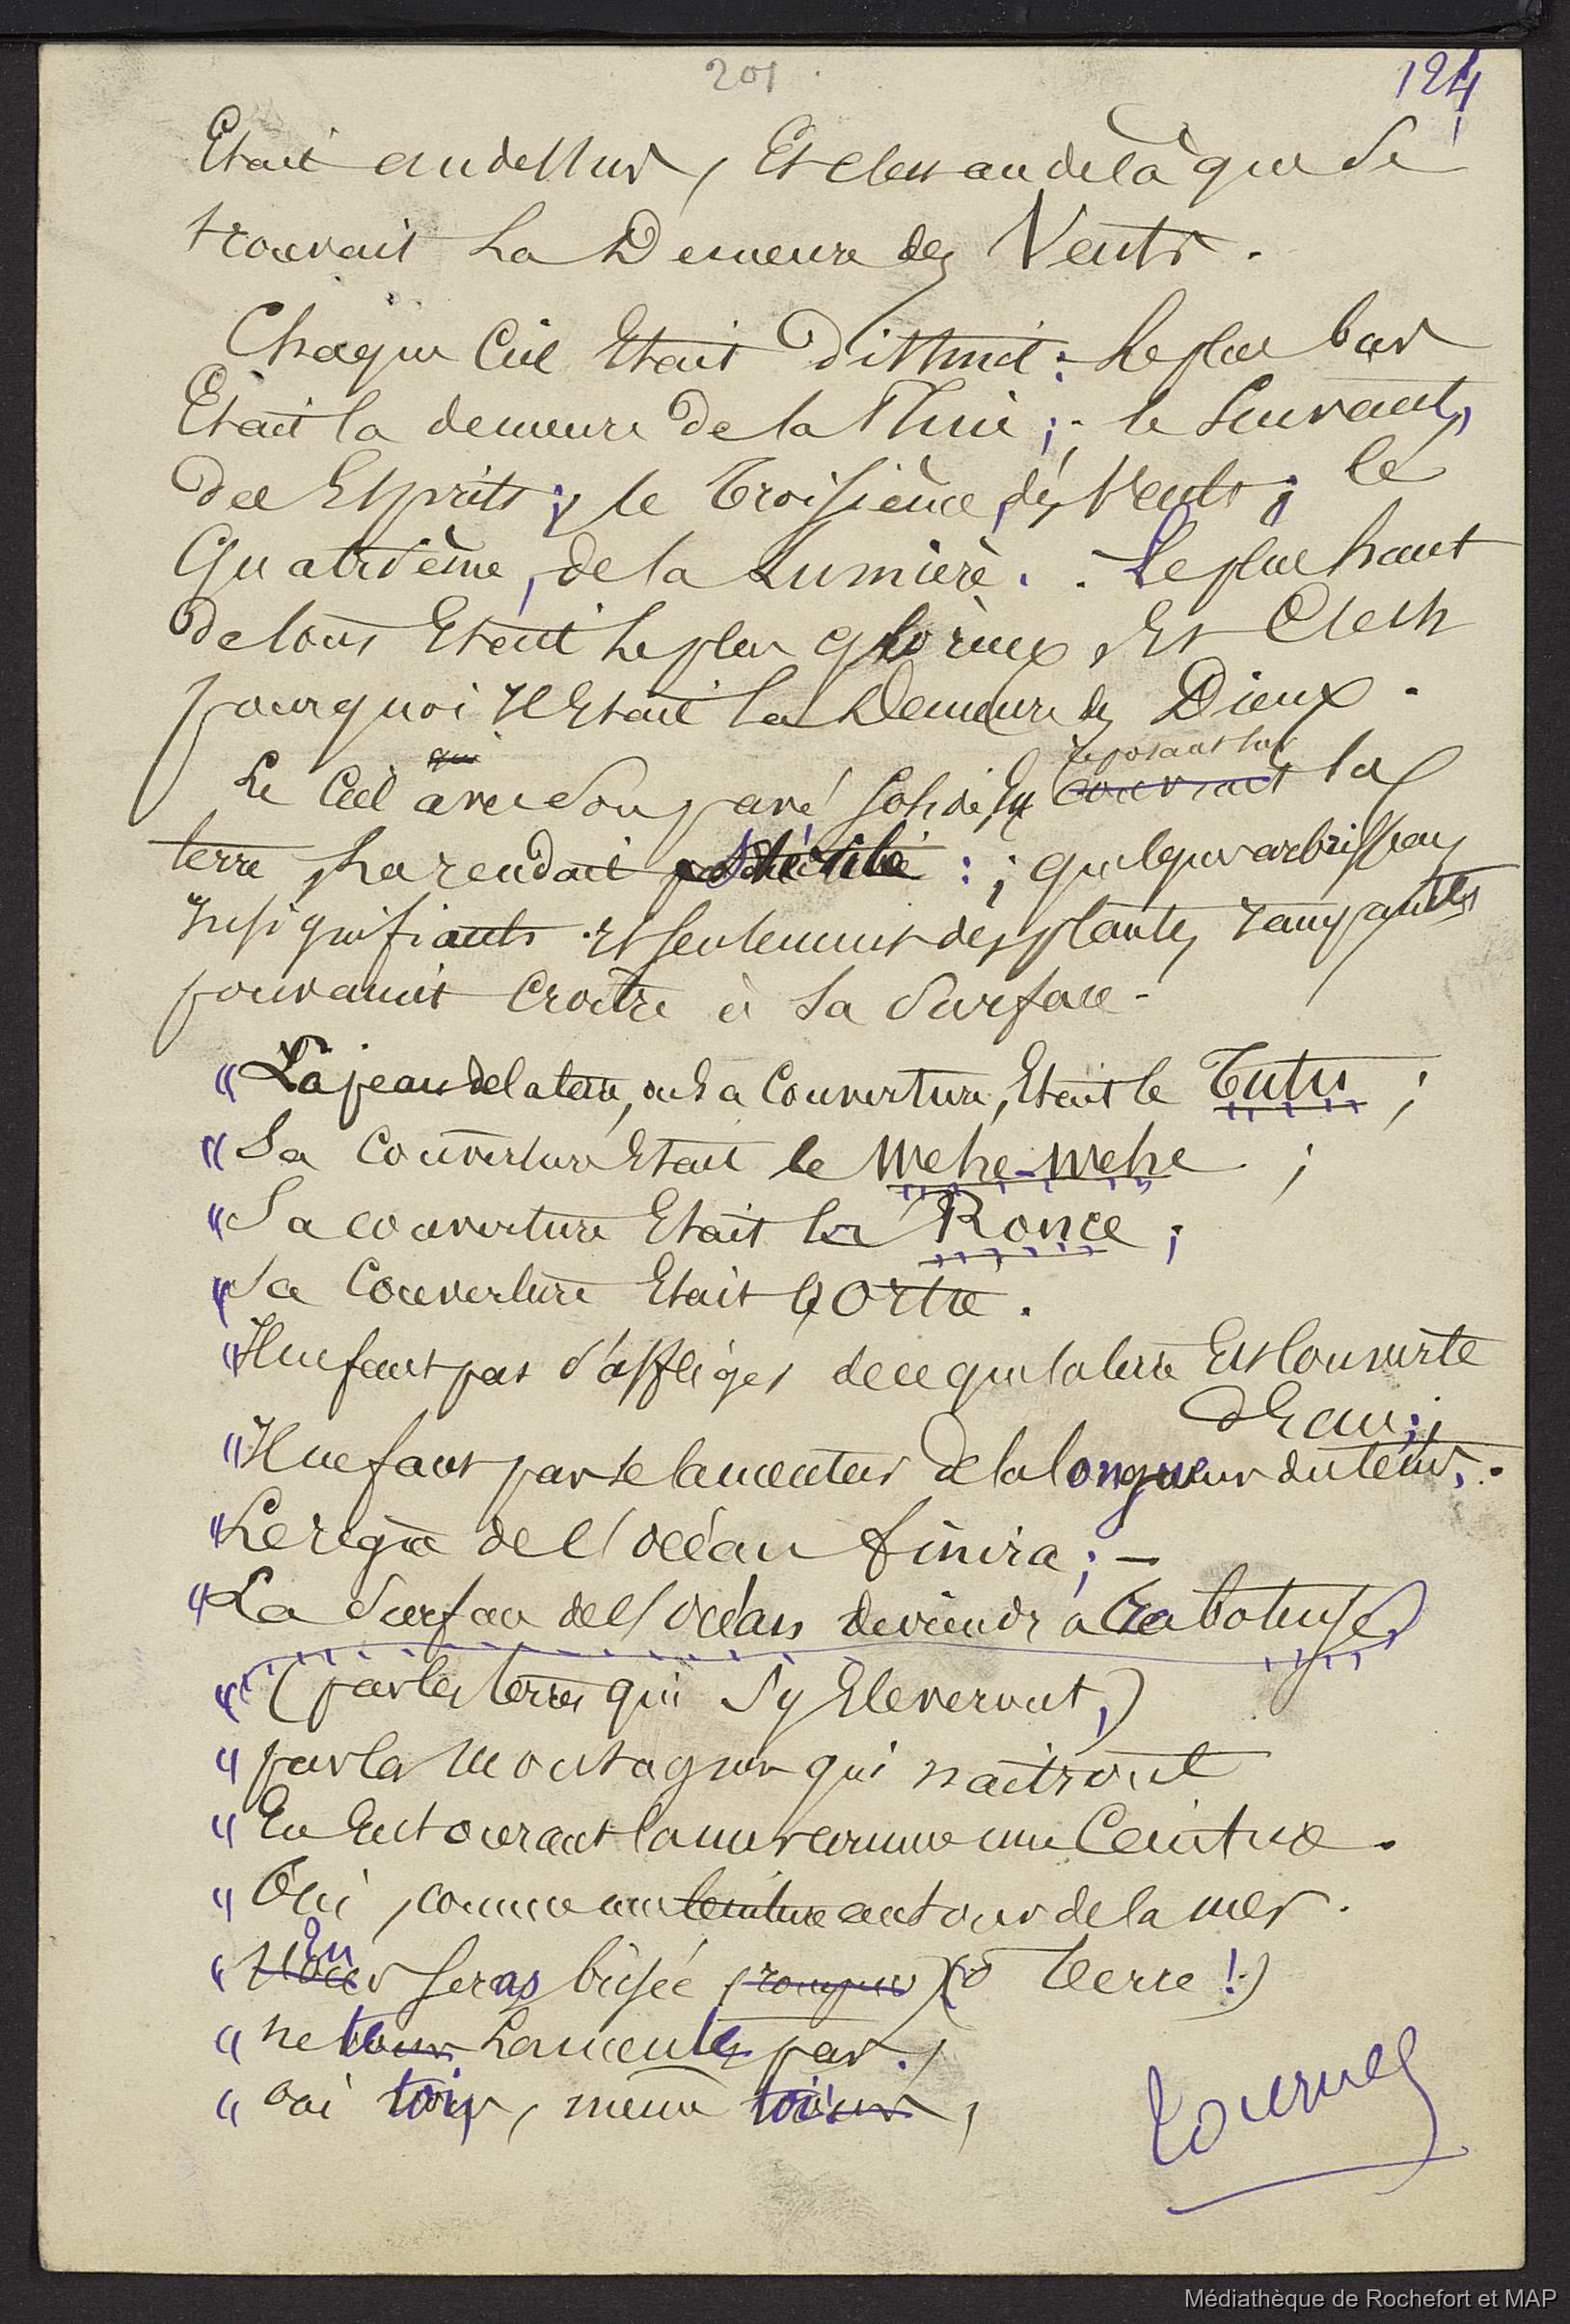 201
124
Etait au dessus, Et c'est au delà que se
trouvait la Demeure des Vents.
Chaque Ciel Etait distinct : le plus bas
Etait la demeure de la Pluie ; le suivant,
des Esprits ; le troisième, des Vents ; le
Quatrième, de la Lumière. Le plus haut
de tous Etait le plus glorieux, Et C'est
pourquoi Il Etait la Demeure des Dieux.
qui reposant sur
Le Ciel avec son pavé solide, couvrait la
terre, la rendait stérile : ; quelques arbrisseaux
Insignifiants Et seulement des plantes rampantes
pouvaient croître à sa surface.
"La peau de la terre, ou sa Couverture, Etait le Tutu ;
"Sa couverture Etait le Mehe-Mehe ;
"Sa couverture Etait la Ronce ;
"Sa Couverture Etait l'Ortie.
"Il ne faut pas s'affliger de ce que la terre Est Couverte
d'Eau ;
"Il ne faut pas se lamenter de la longueur du tems.
"Le règne de l'océan finira ; —
"La Surface de l'océan deviendra raboteuse,
"(par les terres qui s'y Elèveront,)
"par les Montagnes qui naîtront
"En Entourant la mer comme une Ceinture.
"Oui, comme une ceinture autour de la mer.
Tu
"Vous seras brisée, rompue (ô Terre !)
"ne te vous Lamente pas.,
"oui toi, même toi,
Tournez